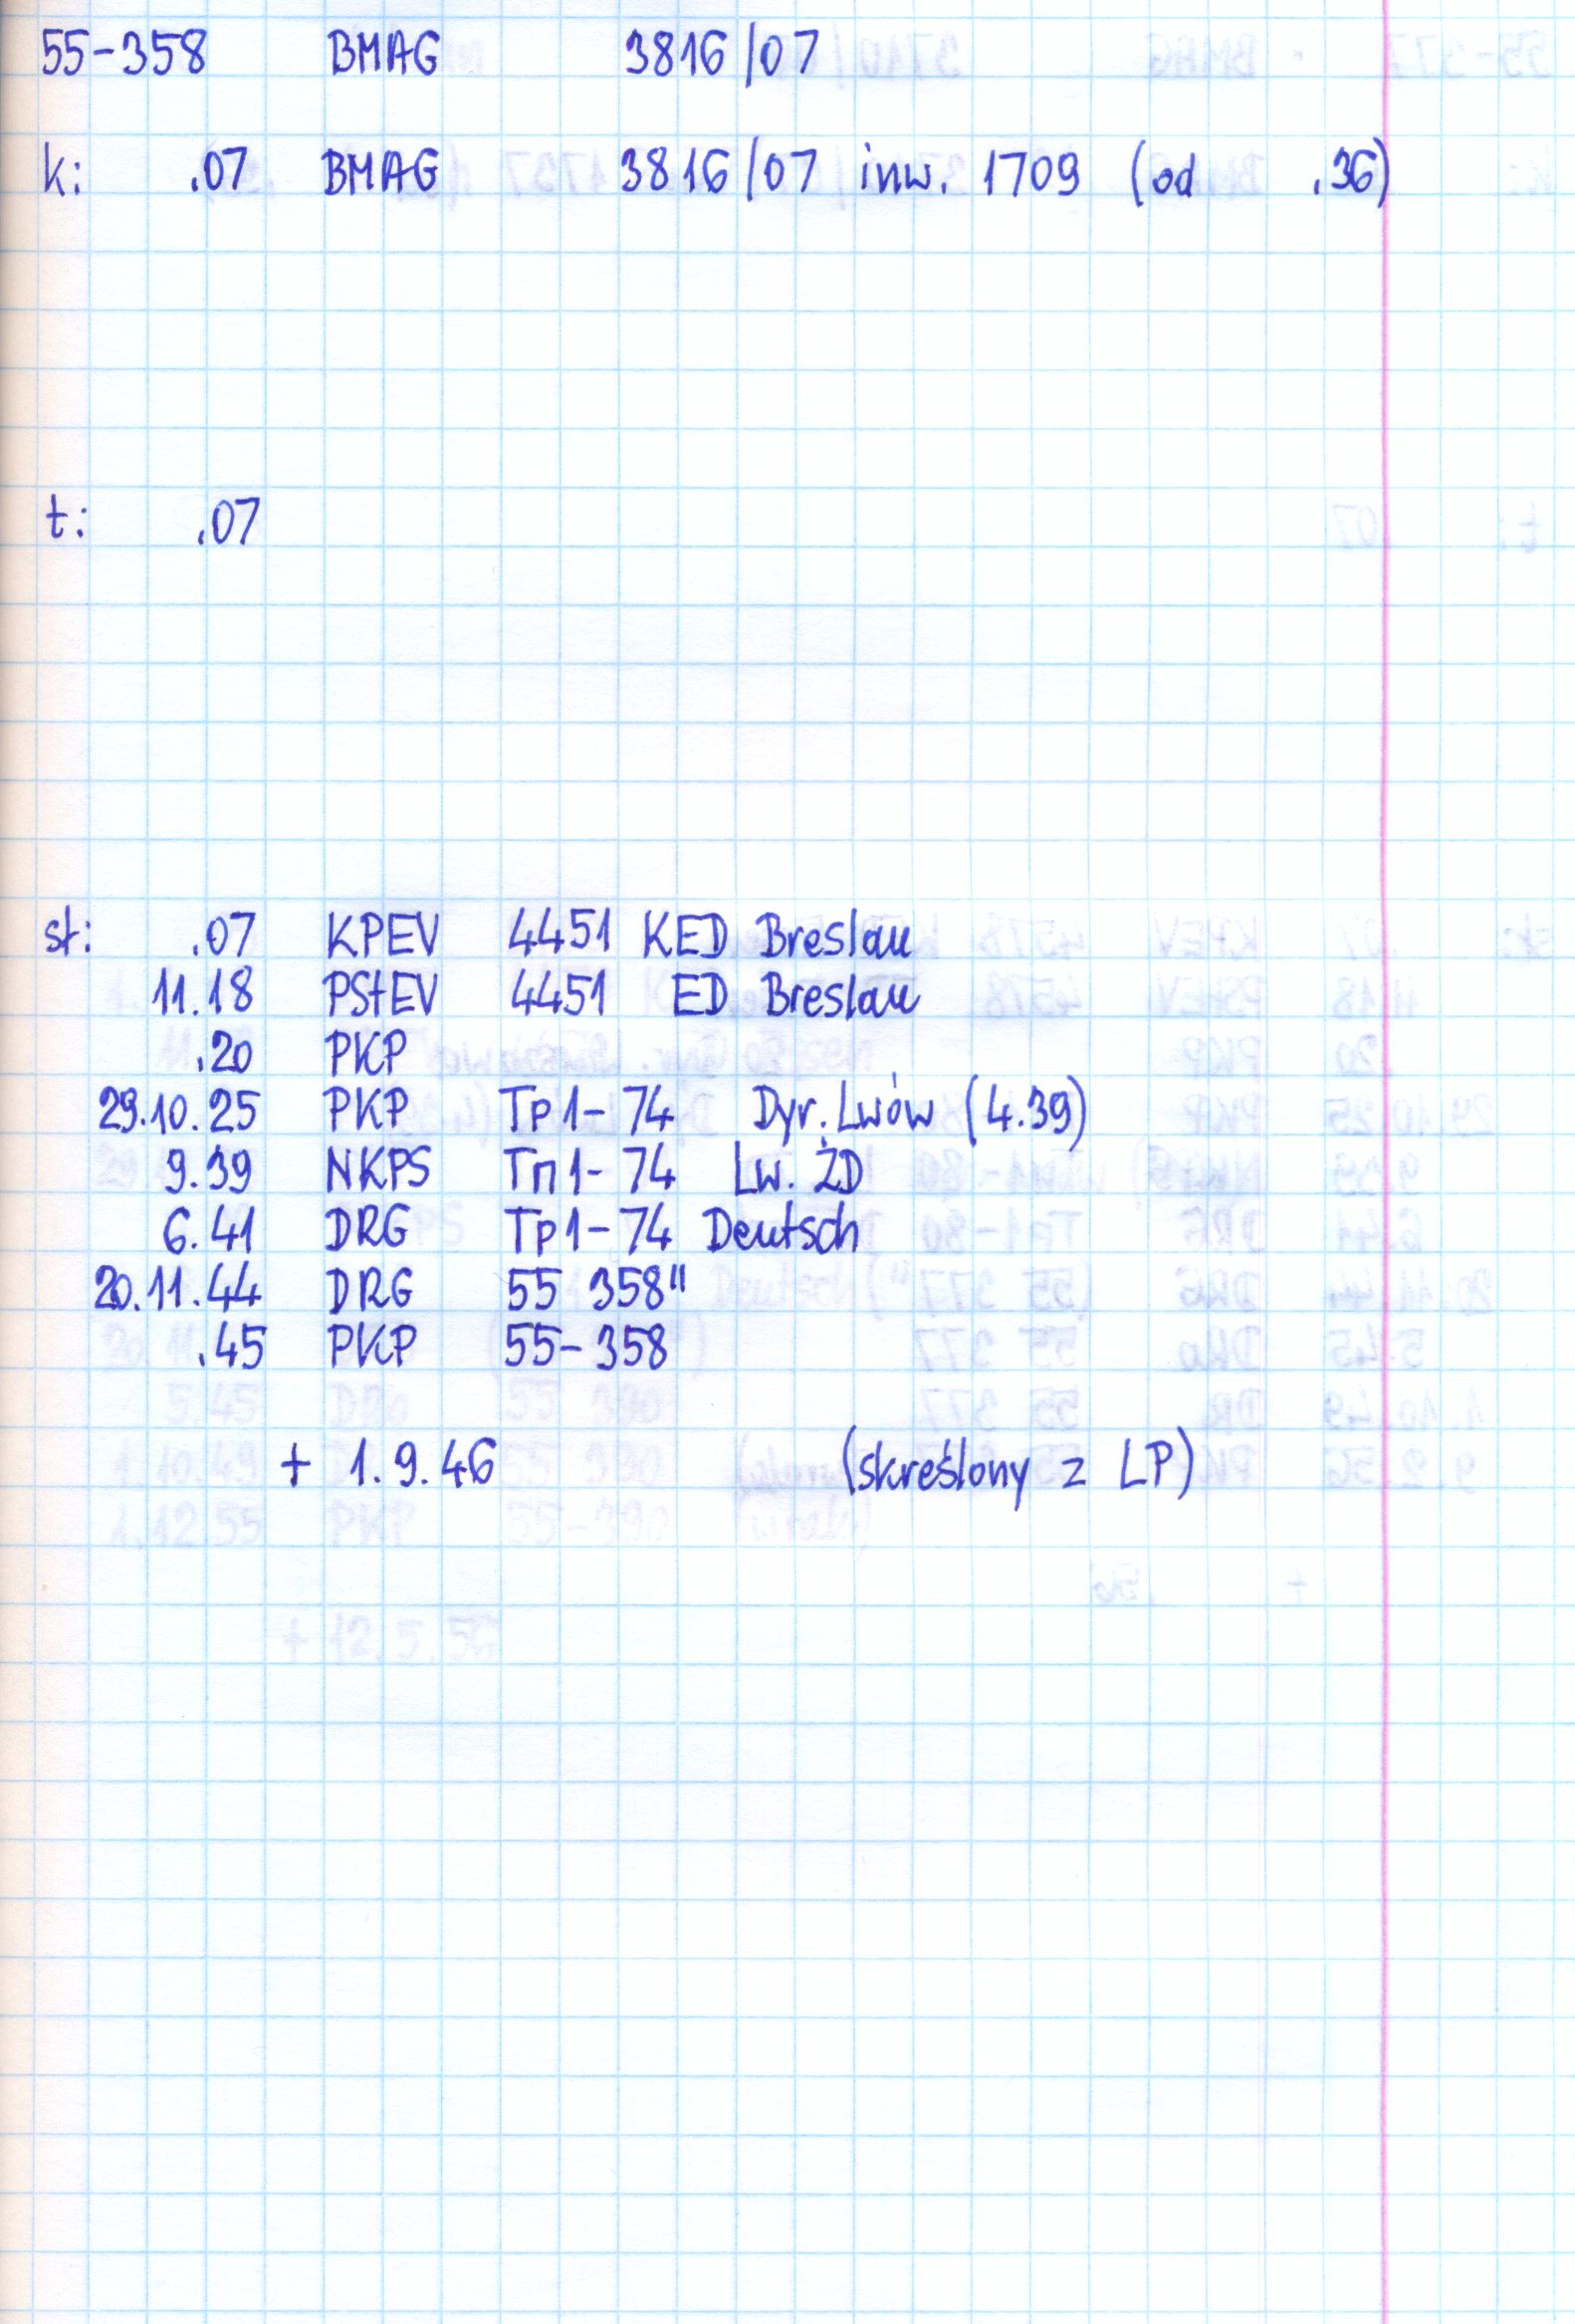 55-358 BMAG 3816/07
k: .07 BMAG 3816/07 inw. 1709 (od .36)
t: .07
st: .07 KPEV 4451 KED Breslau
11.18 PStEV 4451 ED Breslau
.20 PKP
29.10.25 PKP Tp1-74 Dyr. Lwów (4.39)
9.39 NKPS Тп1-74 Lw. ŻD
6.41 DRG Tp1-74 Deutsch
20.11.44 DRG 55 358"
.45 PKP 55-358
+ 1.9.46 (skreślony z LP)